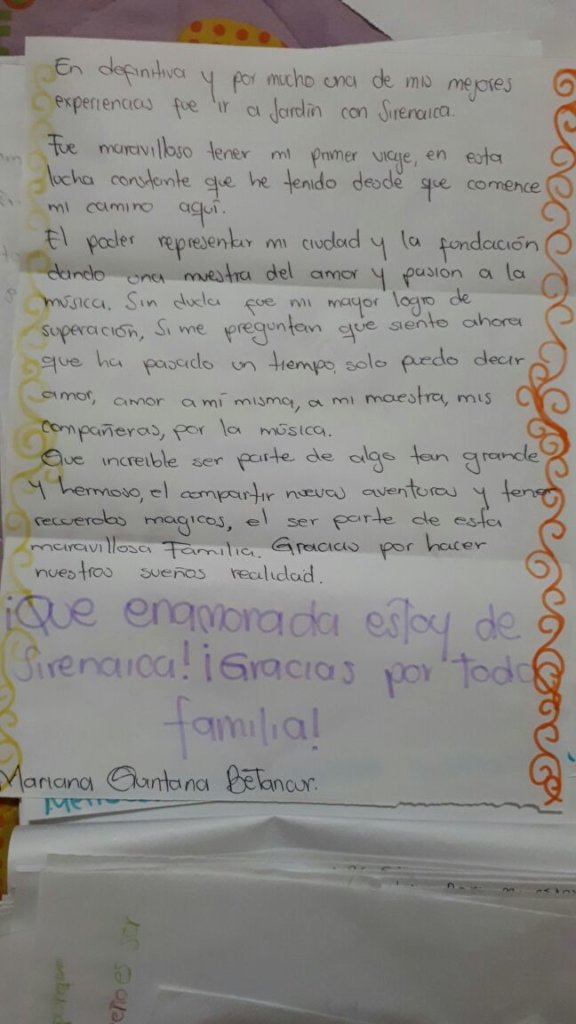 En definitiva y por mucho una de mis mejores
experiencias fue ir a Jardín con Sirenaica.
Fue maravilloso tener mi primer viaje, en esta
lucha constante que he tenido desde que comence
mi camino aquí.
El poder representar mi ciudad y la fundación
dando una muestra del amor y pasion a la
música. Sin duda fue mi mayor logro de
superación, Si me preguntan que siento ahora
que ha pasado un tiempo, solo puedo decir
amor, amor a mí misma, a mi maestra, mis
compañeras, por la música.
Que increible ser parte de algo tan grande
y hermoso, el compartir nuevas aventuras y tener
recuerdos magicos, el ser parte de esta
maravillosa Familia. Gracias por hacer
nuestros sueños realidad.
¡Que enamorada estoy de
Sirenaica! ¡Gracias por todo
familia!
Mariana Quintana Betancur.